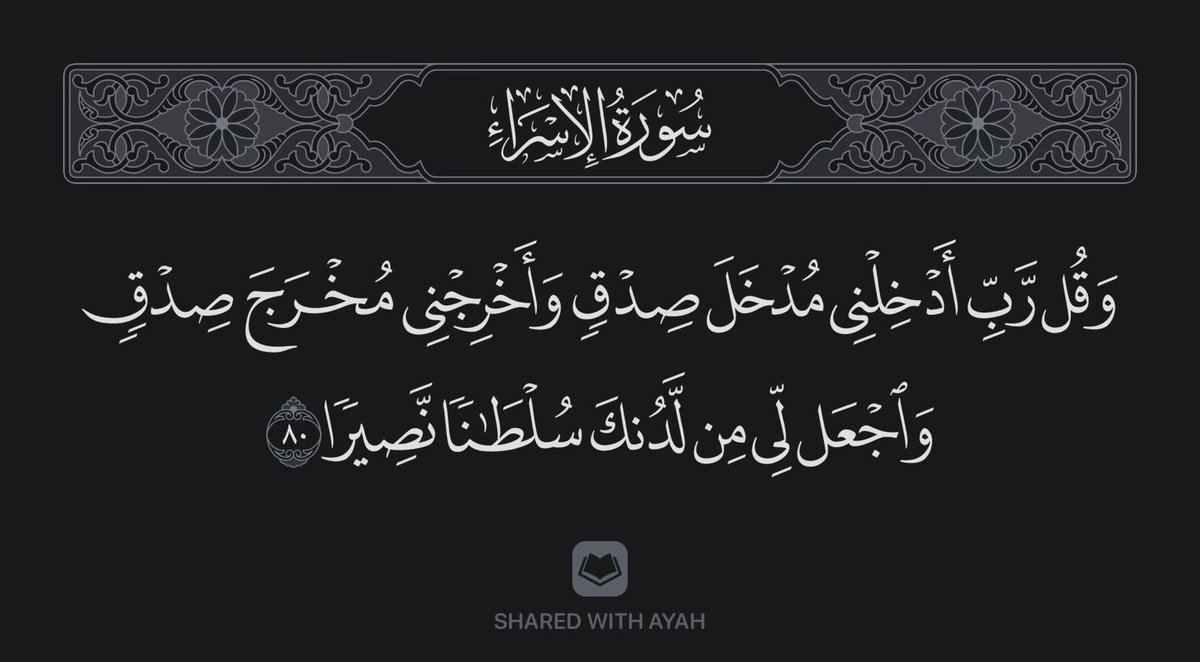 سُورَةُ الإِسْرَاءِ
وَقُل رَّبِّ أَدْخِلْنِى مُدْخَلَ صِدْقٍ وَأَخْرِجْنِى مُخْرَجَ صِدْقٍ
وَٱجْعَل لِّى مِن لَّدُنكَ سُلْطَـٰنًا نَّصِيرًا ٨٠
SHARED WITH AYAH